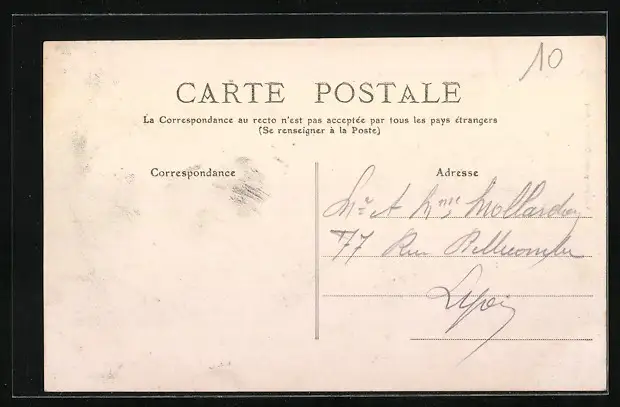 10
CARTE POSTALE
La Correspondance au recto n'est pas acceptée par tous les pays étrangers
(Se renseigner à la Poste)
Correspondance
Adresse
Mr et Mme
77 Rue Bellecombe
Lyon